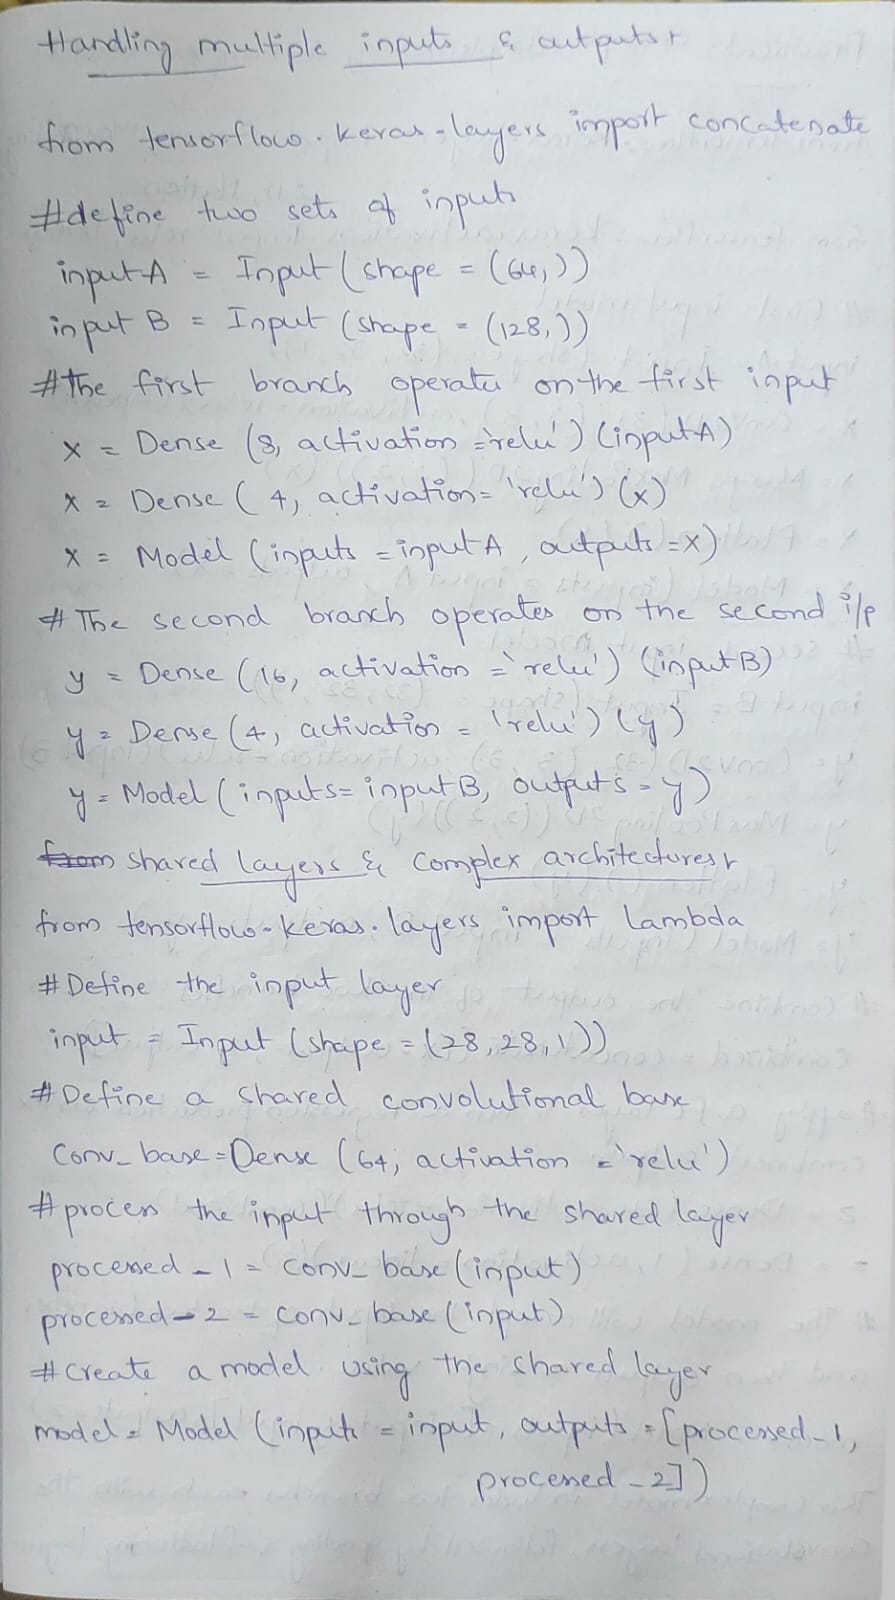 Handling multiple inputs & outputs:
from tensorflow.keras.layers import concatenate
#define two sets of inputs
inputA = Input (shape = (64,))
input B = Input (shape = (128,))
#The first branch operates on the first input
x = Dense (8, activation ='relu') (inputA)
x = Dense ( 4, activation= 'relu') (x)
x = Model (inputs = input A , outputs =x)
# The second branch operates on the second i/p
y = Dense (16, activation ='relu') (inputB)
y = Dense (4, activation = 'relu') (y)
y = Model (inputs= inputB, outputs = y)
from shared layers & Complex architectures:
from tensorflow.keras.layers import Lambda
#Define the input layer
input = Input (shape = (28,28,1))
#Define a shared convolutional base
Conv_base=Dense (64, activation ='relu')
#process the input through the shared layer
processed_1 = conv_base (input)
processed_2 = conv_base (input)
#Create a model using the shared layer
model = Model (inputs = input, outputs = [processed_1,
processed_2])